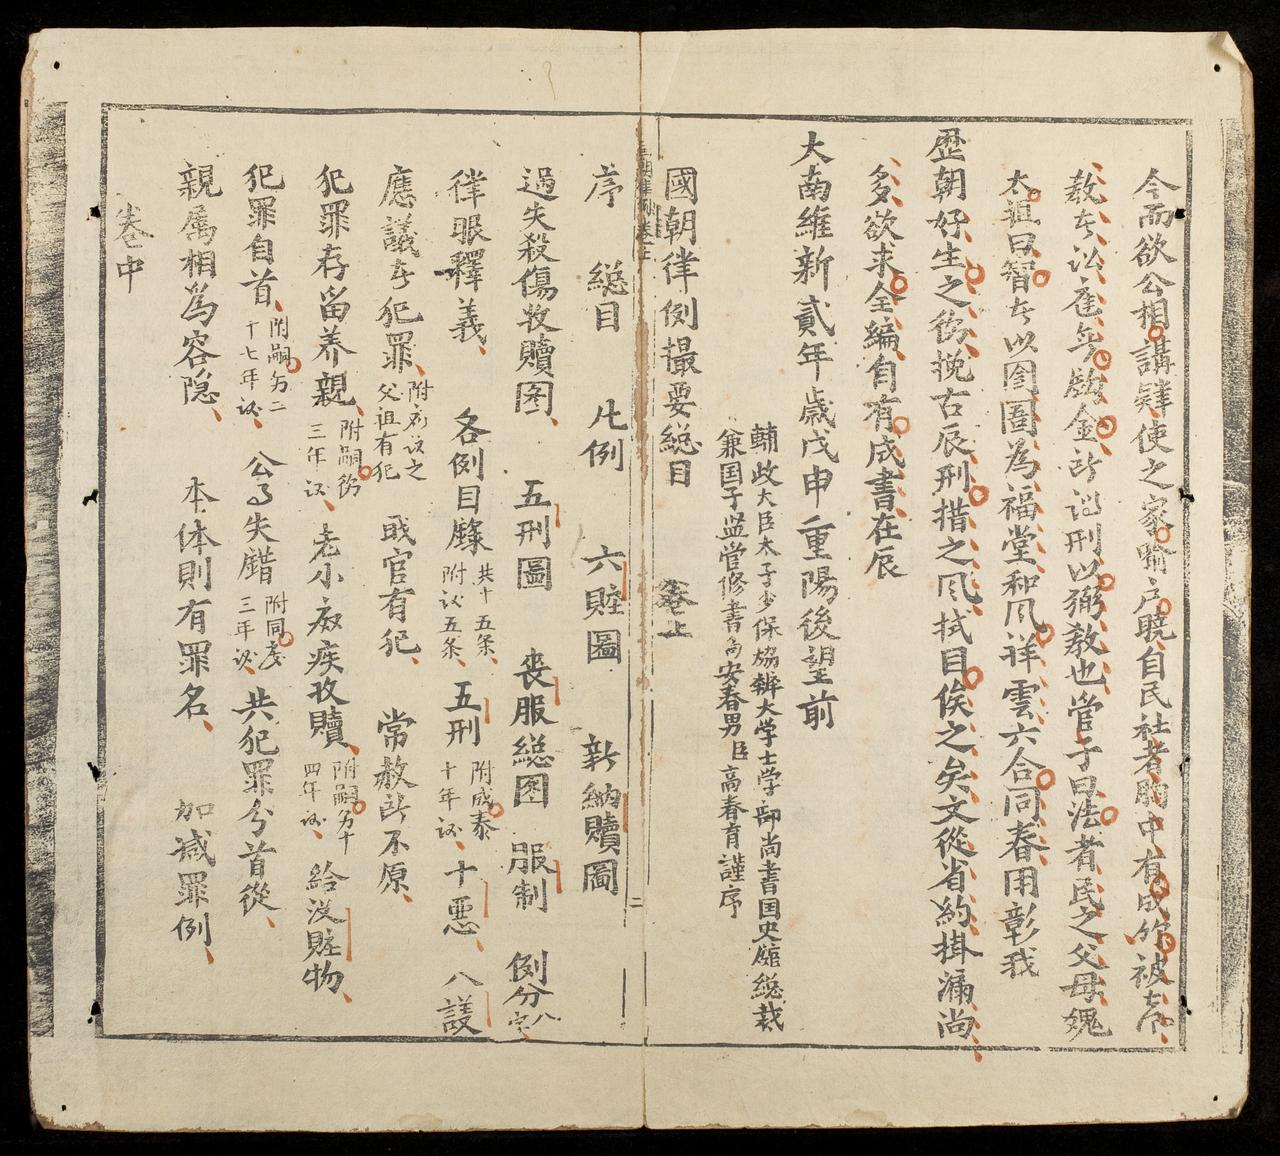 今而欲公相講肄使之家喻户曉自民社者胸中有成竹被
教訟庭無金刑以弼教也管子曰法者民之父母
太祖曰智以圄圖為福堂和風祥雲六合同春用彰我
歷朝好生之挽古辰刑措之風拭目俟之矣文從省約掛漏尚
多欲求全編自有成書在辰
大南維新貳年歲戊申重陽後望前
輔政大臣太子少保協辦大学士学部尚書国史館総裁
兼国子監管修書安春男臣高春育謹序
國朝律例撮要総目 卷上
序 総目 凡例 六贓圖 新納贖圖
二
過失殺傷收贖图 五刑圖 喪服総图 服制 例分八字
律眼釋義 各例目錄 共十五条 附议五条 五刑 附成泰十年议 十惡 八議
應議者犯罪 附之父祖有犯 戢官有犯 常赦所不原
犯罪存留养親 附嗣德三年议 老小疾收贖 附嗣十四年议 給没贓物
犯罪自首 附嗣二十七年议 公失錯 附同慶三年议 共犯罪分首從
親属相為容隐 本体則有罪名 加减罪例
卷中